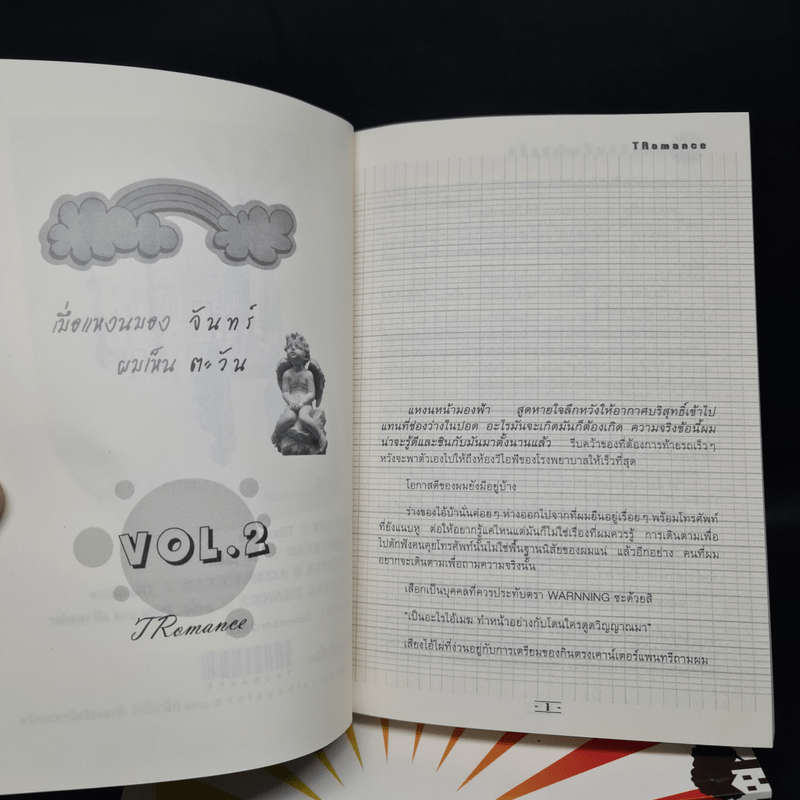 เมื่อแหงนมอง จันทร์
ผมเห็น ตะวัน
VOL.2
TRomance
TRomance
แหงนหน้ามองฟ้า สูดหายใจลึกหวังให้อากาศบริสุทธิ์เข้าไป
แทนที่ช่องว่างในปอด อะไรมันจะเกิดมันก็ต้องเกิด ความจริงข้อนี้ผม
น่าจะรู้ดีและชินกับมันมาตั้งนานแล้ว รีบคว้าของที่ต้องการท้ายรถเร็วๆ
หวังจะพาตัวเองไปให้ถึงห้องวีไอพีของโรงพยาบาลให้เร็วที่สุด
โอกาสดีของผมยังมีอยู่บ้าง
ร่างของไอ้บ้านั่นค่อยๆ ห่างออกไปจากที่ผมยืนอยู่เรื่อยๆ พร้อมโทรศัพท์
ที่ยังแนบหู ต่อให้อยากรู้แค่ไหนแต่มันก็ไม่ใช่เรื่องที่ผมควรรู้ การเดินตามเพื่อ
ไปดักฟังคนคุยโทรศัพท์นั้นไม่ใช่พื้นฐานนิสัยของผมแน่ แล้วอีกอย่าง คนที่ผม
อยากจะเดินตามเพื่อถามความจริงนั้น
เสือกเป็นบุคคลที่ควรประทับตรา WARNNING ซะด้วยสิ
"เป็นอะไรไอ้เมฆ ทำหน้าอย่างกับโดนใครดูดวิญญาณมา"
เสียงไอ้ไผ่ที่ง่วนอยู่กับการเตรียมของกินตรงเคาน์เตอร์แพนทรีถามผม
- 1 -